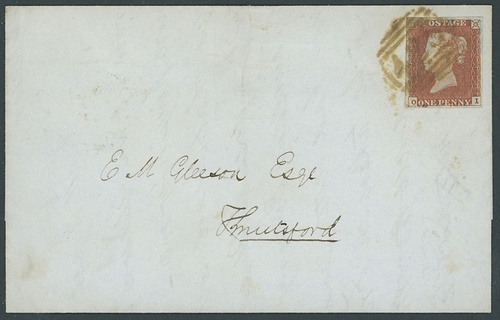 POSTAGE
O I
ONE PENNY
E M Gleeson Esqe
Knutsford